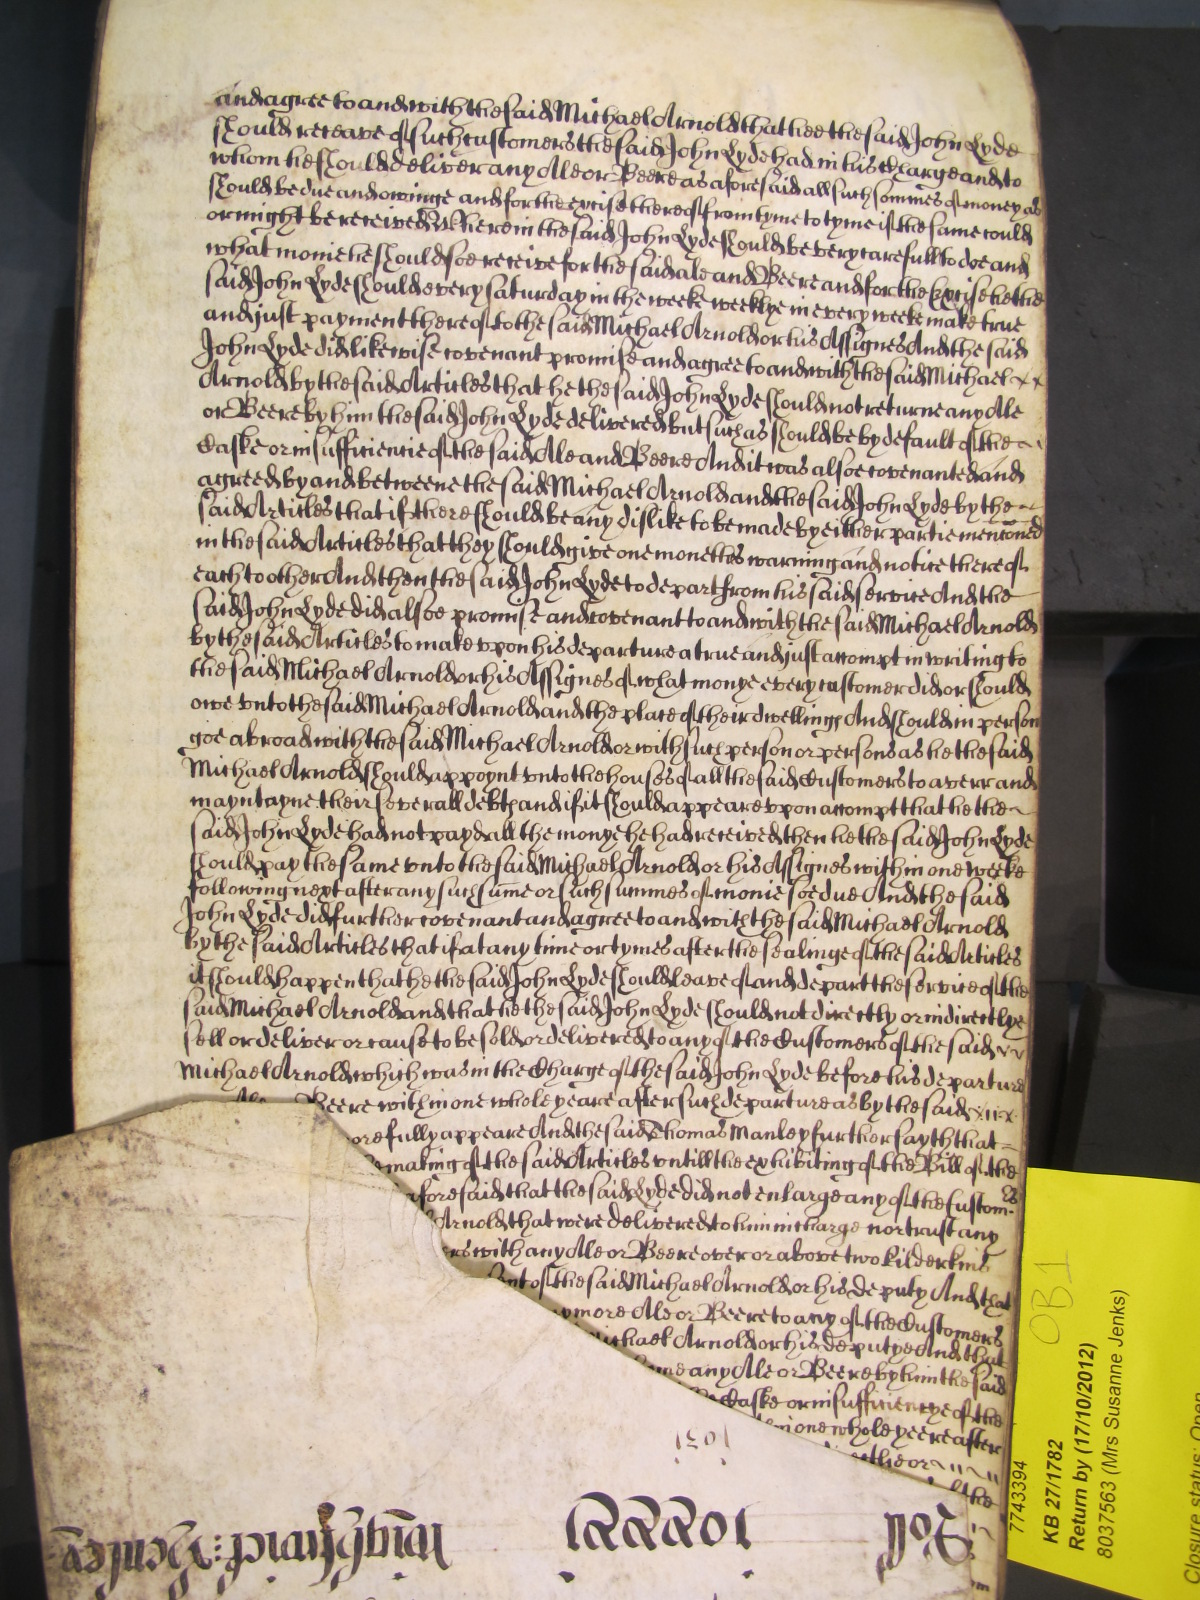 and agree to and with the said Michael Arnold that hee the said John Lyde
should receave of such customers the said John Lyde had in his Charge and to
whom he should deliver any Ale or Beere as aforesaid all such sommes of money as
should be due and owinge and for the excise thereof from tyme to tyme if the same could
or might be received Wherein the said John Lyde should be very carefull to doe and
what monie he should soe receive for the said ale and Beere and for the Excise he the
said John Lyde should every Saturday in the weeke weeklye in every weeke make true
and just payment thereof to the said Michael Arnold or his Assignes And the said
John Lyde did likewise covenant promise and agree to and with the said Michael
Arnold by the said Articles that he the said John Lyde should not returne any Ale
or Beere by him the said John Lyde delivered but such as should be by default of the
Caske or insufficiencie of the said Ale and Beere And it was alsoe covenanted and
agreed by and betweene the said Michael Arnold and the said John Lyde by the
said Articles that if there should be any dislike to be made by either partie menconed
in the said Articles that they should give one moneths warning and notice thereof
each to other And then the said John Lyde to depart from his said service And the
said John Lyde did alsoe promise and covenant to and with the said Michael Arnold
by the said Articles to make vpon his departure a true and just accompt in writing to
the said Michael Arnold or his Assignes of what monye every customer did or should
owe vnto the said Michael Arnold and the place of their dwellings And should in person
goe abroad with the said Michael Arnold or with such person or persons as he the said
Michael Arnold should appoynt vnto the houses of all the said Customers to averr and
mayntayne their severall debts and if it should appeare vpon accompt that he the
said John Lyde had not payd all the monye he had received then he the said John Lyde
should pay the same vnto the said Michael Arnold or his Assignes within one weeke
following next after any such sume or such summes of monie soe due And the said
John Lyde did further covenant and agree to and with the said Michael Arnold
by the said Articles that if at any time or tymes after the sealinge of the said Articles
it should happen that he the said John Lyde should leave of and depart the service of the
said Michael Arnold and that he the said John Lyde should not directly or indirectlye
sell or deliver or cause to be sold or delivered to any of the Customers of the said
Michael Arnold which was in the Charge of the said John Lyde before his departure
Beere within one whole yeare after such departure as by the said
ore fully appeare And the said Thomas Manley further sayth that
making of the said Articles vntill the exhibiting of the Bill of the
aforesaid that the said Lyde did not enlarge any of the Custom
Arnold that were delivered to him in charge nor trust any
ers with any Ale or Beere over or above two kilderkins
ent of the said Michael Arnold or his deputy And that
more Ale or Beere to any of the Customers
Michael Arnold or his deputye And that
any Ale or Beere by him the said
Caske or insufficiencye of the
in one whole yeere after
or
the
1651
Roll
Wrighthwick: Henley
7743394
KB 27/1782
OB1
Return by (17/10/2012)
8037563 (Mrs Susanne Jenks)
Closure status: Open